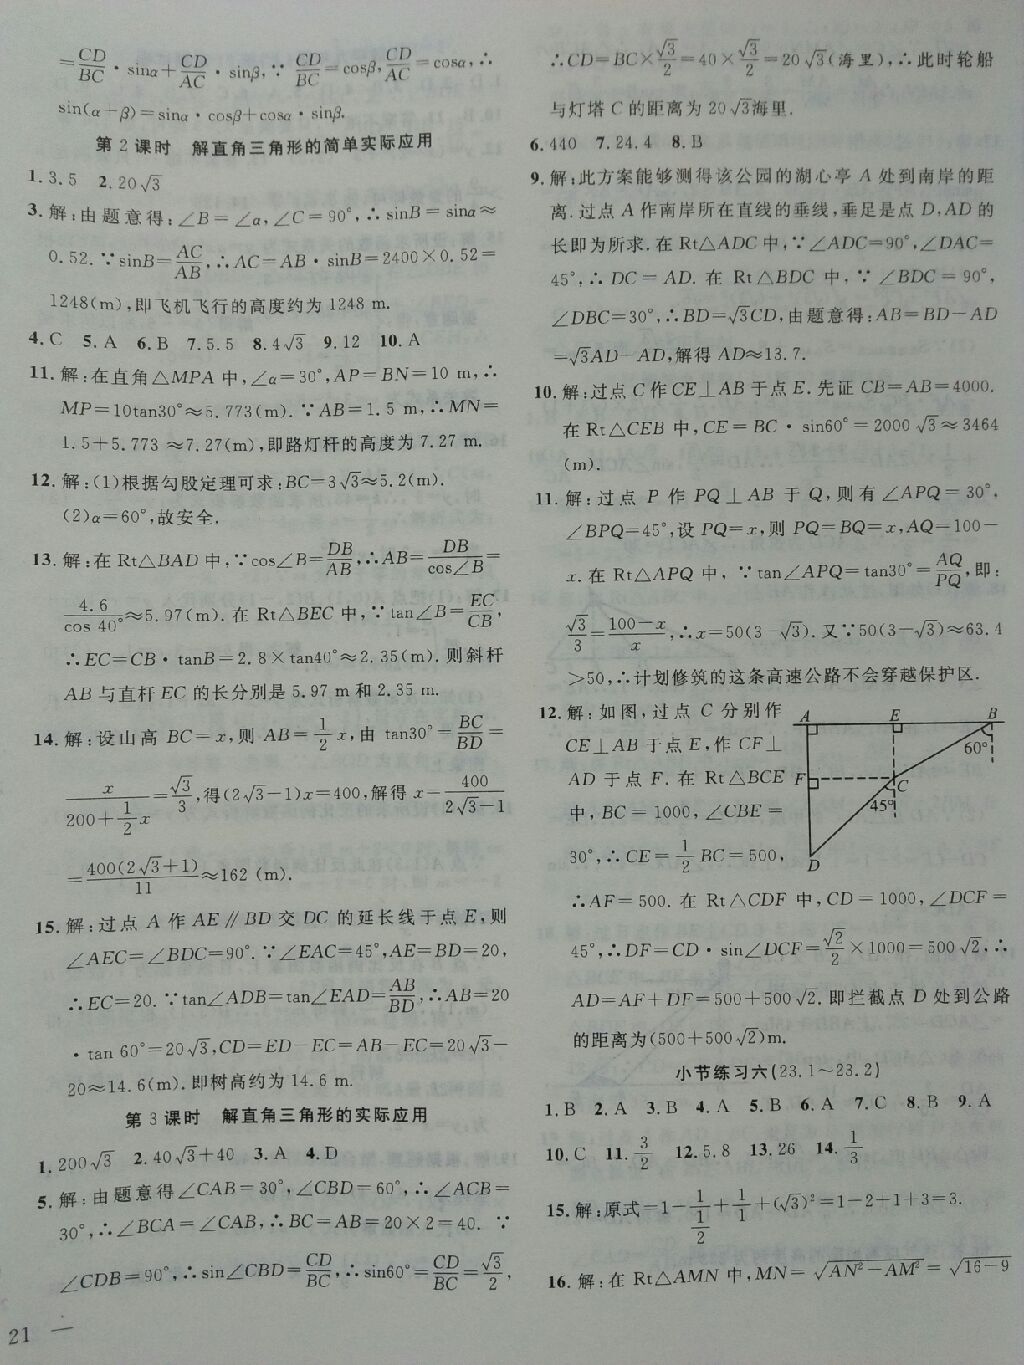 =CD/BC·sinα+CD/AC·sinβ,∵CD/BC=cosβ,CD/AC=cosα,∴
sin(α-β)=sinα·cosβ+cosα·sinβ.
第2课时 解直角三角形的简单实际应用
1.3.5 2.20√3
3.解:由题意得:∠B=∠α,∠C=90°,∴sinB=sinα≈
0.52.∵sinB=AC/AB,∴AC=AB·sinB=2400×0.52=
1248(m),即飞机飞行的高度约为1248 m.
4.C 5.A 6.B 7.5.5 8.4√3 9.12 10.A
11.解:在直角△MPA中,∠α=30°,AP=BN=10 m,∴
MP=10tan30°≈5.773(m).∵AB=1.5 m,∴MN=
1.5+5.773≈7.27(m),即路灯杆的高度为7.27 m.
12.解:(1)根据勾股定理可求:BC=3√3≈5.2(m).
(2)α=60°,故安全.
13.解:在Rt△BAD中,∵cos∠B=DB/AB,∴AB=DB/cos∠B=
4.6/cos 40°≈5.97(m).在Rt△BEC中,∵tan∠B=EC/CB,
∴EC=CB·tanB=2.8×tan40°≈2.35(m).则斜杆
AB与直杆EC的长分别是5.97 m和2.35 m.
14.解:设山高BC=x,则AB=1/2x,由tan30°=BC/BD=
x/(200+1/2x)=√3/3,得(2√3-1)x=400,解得x=400/(2√3-1)
=400(2√3+1)/11≈162 (m).
15.解:过点A作AE∥BD交DC的延长线于点E,则
∠AEC=∠BDC=90°.∵∠EAC=45°,AE=BD=20,
∴EC=20.∵tan∠ADB=tan∠EAD=AB/BD,∴AB=20
·tan 60°=20√3,CD=ED-EC=AB-EC=20√3-
20≈14.6(m).即树高约为14.6 m.
第3课时 解直角三角形的实际应用
1.200√3 2.40√3+40 3.A 4.D
5.解:由题意得∠CAB=30°,∠CBD=60°,∴∠ACB=
30°,∴∠BCA=∠CAB,∴BC=AB=20×2=40.∵
∠CDB=90°,∴sin∠CBD=CD/BC,∴sin60°=CD/BC=√3/2,
21
∴CD=BC×√3/2=40×√3/2=20√3(海里),∴此时轮船
与灯塔C的距离为20√3海里.
6.440 7.24.4 8.B
9.解:此方案能够测得该公园的湖心亭A处到南岸的距
离.过点A作南岸所在直线的垂线,垂足是点D,AD的
长即为所求.在Rt△ADC中,∵∠ADC=90°,∠DAC=
45°,∴DC=AD.在Rt△BDC中,∵∠BDC=90°,
∠DBC=30°,∴BD=√3CD,由题意得:AB=BD-AD
=√3AD-AD,解得AD≈13.7.
10.解:过点C作CE⊥AB于点E.先证CB=AB=4000.
在Rt△CEB中,CE=BC·sin60°=2000√3≈3464
(m).
11.解:过点P作PQ⊥AB于Q,则有∠APQ=30°,
∠BPQ=45°,设PQ=x,则PQ=BQ=x,AQ=100-
x.在Rt△APQ中,∵tan∠APQ=tan30°=AQ/PQ,即:
√3/3=(100-x)/x,∴x=50(3-√3).又∵50(3-√3)≈63.4
>50,∴计划修筑的这条高速公路不会穿越保护区.
12.解:如图,过点C分别作
CE⊥AB于点E,作CF⊥
AD于点F.在Rt△BCE
中,BC=1000,∠CBE=
30°,∴CE=1/2BC=500,
A E B
60°
F C
45°
D
∴AF=500.在Rt△CDF中,CD=1000,∠DCF=
45°,∴DF=CD·sin∠DCF=√2/2×1000=500√2,∴
AD=AF+DF=500+500√2.即拦截点D处到公路
的距离为(500+500√2)m.
小节练习六(23.1~23.2)
1.B 2.A 3.B 4.A 5.B 6.A 7.C 8.B 9.A
10.C 11.3/2 12.5.8 13.26 14.1/3
15.解:原式=1-1/(1/2)+1/1+(√3)²=1-2+1+3=3.
16.解:在Rt△AMN中,MN=√(AN²-AM²)=√(16-9